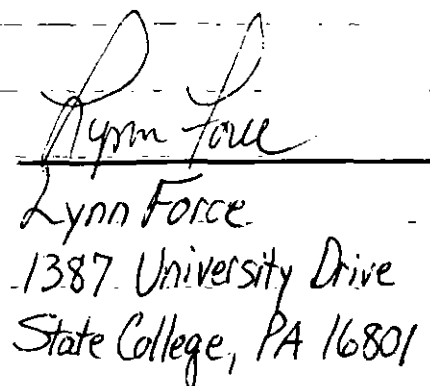 Lynn Force
Lynn Force
1387 University Drive
State College, PA 16801